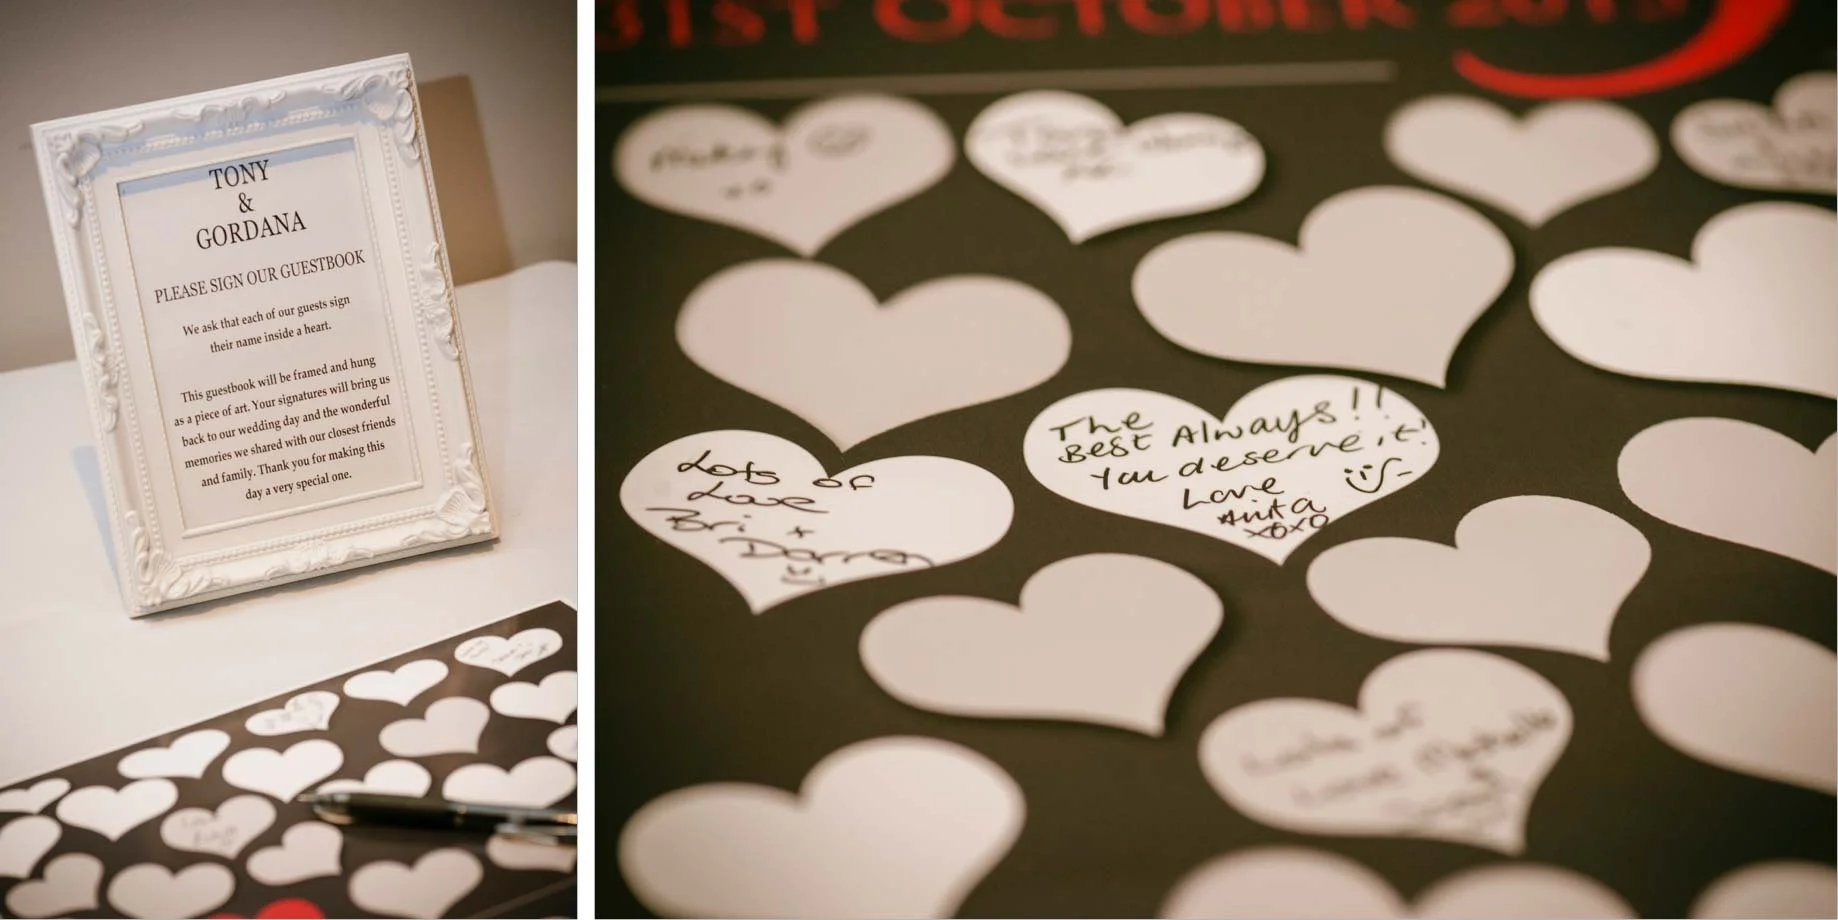 TONY
&
GORDANA
PLEASE SIGN OUR GUESTBOOK
We ask that each of our guests sign
their name inside a heart.
This guestbook will be framed and hung
as a piece of art. Your signatures will bring us
back to our wedding day and the wonderful
memories we shared with our closest friends
and family. Thank you for making this
day a very special one.
31ST OCTOBER 2015
The
Best Always!!
You deserve it!
Love
Anita
XOXO
Lots of
Love
Bri +
Darren